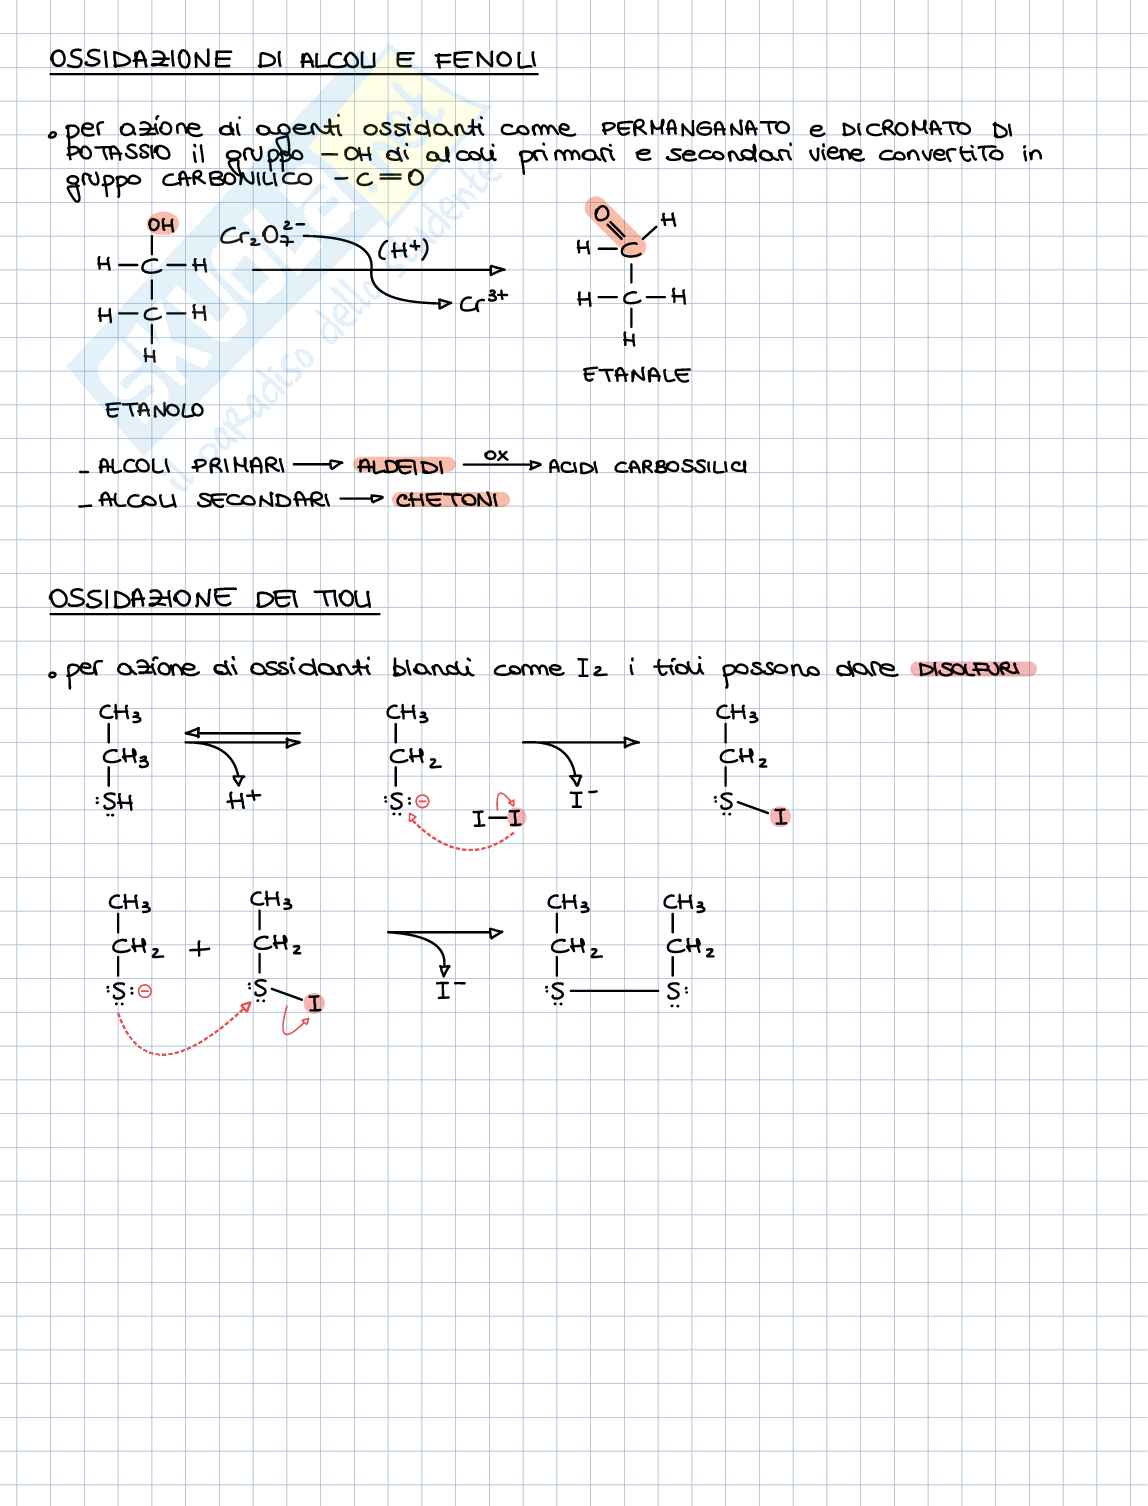 OSSIDAZIONE DI ALCOLI E FENOLI
• per azione di agenti ossidanti come PERMANGANATO e DICROMATO DI
POTASSIO il gruppo -OH di alcoli primari e secondari viene convertito in
gruppo CARBONILICO -C=O
OH
H-C-H
H-C-H
H
ETANOLO
Cr₂O₇²⁻
(H⁺)
Cr³⁺
O H
H-C
H-C-H
H
ETANALE
- ALCOLI PRIMARI → ALDEIDI ox→ ACIDI CARBOSSILICI
- ALCOLI SECONDARI → CHETONI
OSSIDAZIONE DEI TIOLI
• per azione di ossidanti blandi come I₂ i tioli possono dare DISOLFURI
CH₃
CH₃
:SH
H⁺
CH₃
CH₂
:S:⊖
I-I
I⁻
CH₃
CH₂
:S-I
CH₃
CH₂
:S:⊖
+
CH₃
CH₂
:S-I
I⁻
CH₃ CH₃
CH₂ CH₂
:S-S:
SKUOLA.net
il paradiso dello studente